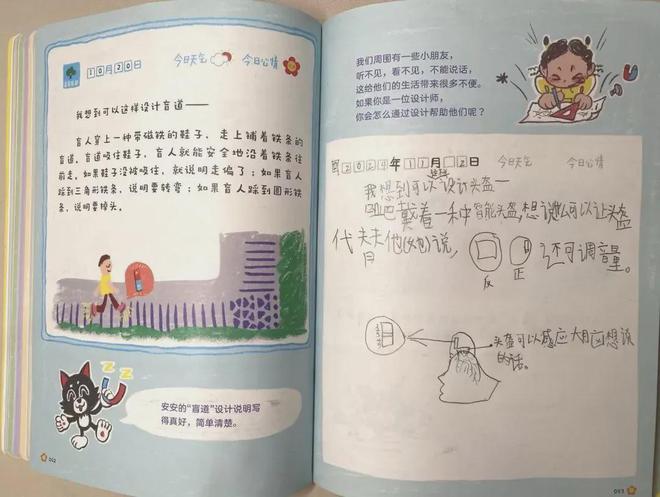 10月20日 今日天气 今日心情
我想到可以这样设计盲道——
盲人穿上一种带磁铁的鞋子，走上铺着铁条的
盲道。盲道吸住鞋子，盲人就能安全地沿着铁条往
前走。如果鞋子没被吸住，就说明走偏了；如果盲人
踩到三角形铁条，说明要转弯；如果盲人踩到圆形铁
条，说明要掉头。
安安的“盲道”设计说明写
得真好，简单清楚。
062
我们周围有一些小朋友，
听不见，看不见，不能说话，
这给他们的生活带来很多不便。
如果你是一位设计师，
你会怎么通过设计帮助他们呢？
2024年11月2日 今日天气 今日心情
我想到可以这样设计头盔—
哑巴戴着一种智能头盔，想说什么可以让头盔
代 他(她)说， 还可调音量。
反 正
头盔可以感应大脑想说
的话。
063